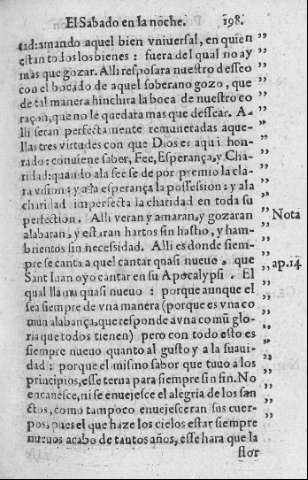 El Sabado en la noche. 198.
tad: amando aquel bien vniuersal, en quien
estan todos los bienes: fuera del qual no ay
mas que gozar. Alli resposara nuestro desseo
con el bocado de aquel soberano gozo, que
de tal manera hinchira la boca de nuestro co
raçon, que no le quedara mas que dessear. A-
lli seran perfectamente remuneradas aque-
llas tres virtudes con que Dios es aqui hon-
rado: conuiene saber, Fee, Esperança, y Cha-
ridad: quando a la fee se de por premio la cla-
ra vision: y a la esperança la possession: y a la
charidad imperfecta la charidad en toda su
perfection. Alli veran y amaran, y gozaran
Nota
alabaran, y estaran hartos sin hastio, y ham-
brientos sin necesidad. Alli es donde siem-
pre se canta aquel cantar quasi nueuo, que
ap. 14
Sant Iuan oyo cantar en su Apocalypsi. El
qual llama quasi nueuo: porque aunque el
sea siempre de vna manera (porque es vna co
mun alabança, que responde a vna comũ glo-
ria que todos tienen) pero con todo esto es
siempre nueuo quanto al gusto y a la suaui-
dad: porque el mismo sabor que tuuo a los
principios, esse terna para siempre sin fin. No
encanesce, ni se enuejesce el alegria de los san
ctos, como tampoco enuejesceran sus cuer-
pos, pues el que haze los cielos estar siempre
nueuos acabo de tantos años, esse hara que la
flor